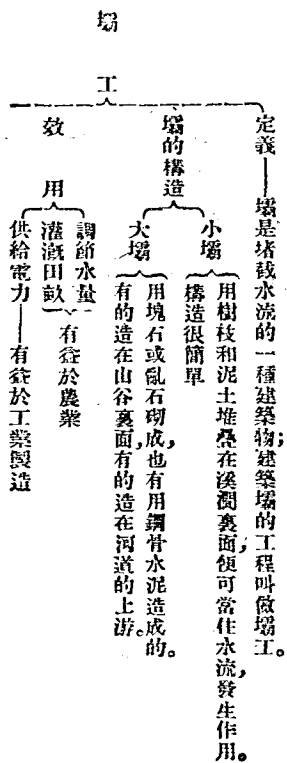 壩工
定義——壩是堵截水流的一種建築物；建築壩的工程叫做壩工。
壩的構造
小壩
用樹枝和泥土堆疊在溪澗裏面，便可當住水流，發生作用。
構造很簡單
大壩
用塊石或亂石砌成，也有用鋼骨水泥造成的。
有的造在山谷裏面，有的造在河道的上游。
效用
調節水量
灌溉田畝
有益於農業
供給電力——有益於工業製造